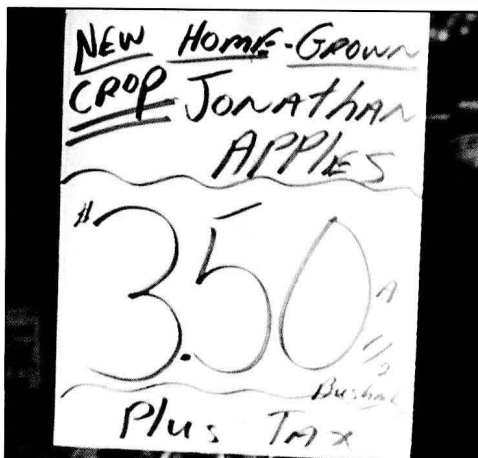 NEW HOME-GROWN
CROP JONAthAN
APPlES
$3.50 A
1/2
Bushel
Plus TAx